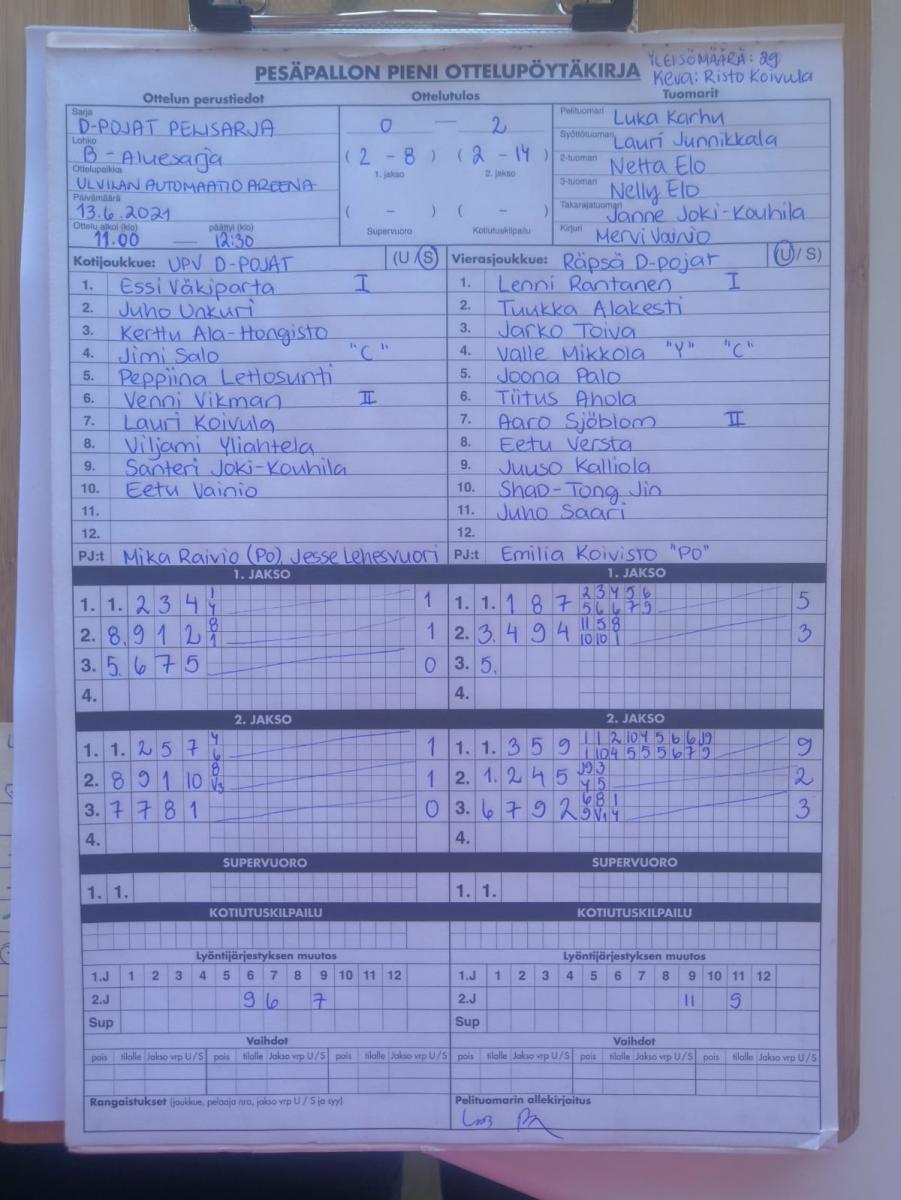 YLEISÖMÄÄRÄ: 29
PESÄPALLON PIENI OTTELUPÖYTÄKIRJA
Keva: Risto Koivula
Ottelun perustiedot
Sarja
D-POJAT PENSARJA
Lohko
B - Aluesarja
Ottelupaikka
ULVILAN AUTOMAATIO AREENA
Päivämäärä
13.6.2021
Ottelu alkoi (klo) päättyi (klo)
11.00 — 12:30
Ottelutulos
0 — 2
( 2 - 8 ) ( 2 - 14 )
1. jakso 2. jakso
( - ) ( - )
Supervuoro Kotiutuskilpailu
Tuomarit
Pelituomari Luka Karhu
Syöttötuomari Lauri Junnikkala
2-tuomari Netta Elo
3-tuomari Nelly Elo
Takarajatuomari Janne Joki-Kouhila
Kirjuri Mervi Vainio
Kotijoukkue: UPV D-POJAT (U / S)
1. Essi Väkiparta I
2. Juho Unkuri
3. Kerttu Ala-Hongisto
4. Jimi Salo "C"
5. Peppiina Lettosunti
6. Venni Vikman II
7. Lauri Koivula
8. Viljami Yliahtela
9. Santeri Joki-Kouhila
10. Eetu Vainio
11.
12.
PJ:t Mika Raivio (PO), Jesse Lehesvuori
Vierasjoukkue: Räpsä D-pojat (U / S)
1. Lenni Rantanen I
2. Tuukka Alakesti
3. Jarko Toiva
4. Valle Mikkola "Y" "C"
5. Joona Palo
6. Tiitus Ahola
7. Aaro Sjöblom II
8. Eetu Versta
9. Juuso Kalliola
10. Shao-Tong Jin
11. Juho Saari
12.
PJ:t Emilia Koivisto "PO"
1. JAKSO
1. 1. 2 3 4 1 4 1
2. 8. 9 1 2 8 1 1
3. 5. 6 7 5 0
4.
2. JAKSO
1. 1. 2 5 7 4 6 1
2. 8 9 1 10 8 V3 1
3. 7 7 8 1 0
4.
SUPERVUORO
1. 1.
KOTIUTUSKILPAILU
Lyöntijärjestyksen muutos
1.J 1 2 3 4 5 6 7 8 9 10 11 12
2.J 9 6 7
Sup
Vaihdot
pois tilalle Jakso vrp U/S pois tilalle Jakso vrp U/S pois tilalle Jakso vrp U/S
Rangaistukset (joukkue, pelaaja nro, jakso vrp U / S ja syy)
1. JAKSO
1. 1. 1 8 7 2 3 4 5 6
5 6 6 7 9 5
2. 3. 4 9 4 11 5 8
10 10 1 3
3. 5.
4.
2. JAKSO
1. 1. 3 5 9 1 1 2 10 4 5 6 6 J9
1 10 4 5 5 5 6 7 9 9
2. 1. 2 4 5 J9 3
4 5 2
3. 6 7 9 2 6 8 1
9 V1 4 3
4.
SUPERVUORO
1. 1.
KOTIUTUSKILPAILU
Lyöntijärjestyksen muutos
1.J 1 2 3 4 5 6 7 8 9 10 11 12
2.J 11 9
Sup
Vaihdot
pois tilalle Jakso vrp U/S pois tilalle Jakso vrp U/S pois tilalle Jakso vrp U/S
Pelituomarin allekirjoitus